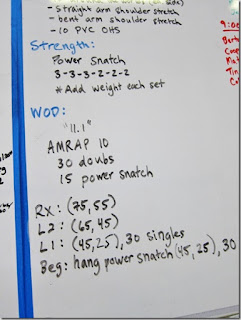 - straight arm shoulder stretch
- bent arm shoulder stretch
- 10 PVC OHS
Strength:
Power Snatch
3-3-3-2-2-2
* Add weight each set
WOD:
"11.1"
AMRAP 10
30 doubs
15 power snatch
Rx: (75,55)
L2: (65,45)
L1: (45,25), 30 singles
Beg: hang power snatch (45, 25), 30
9:00